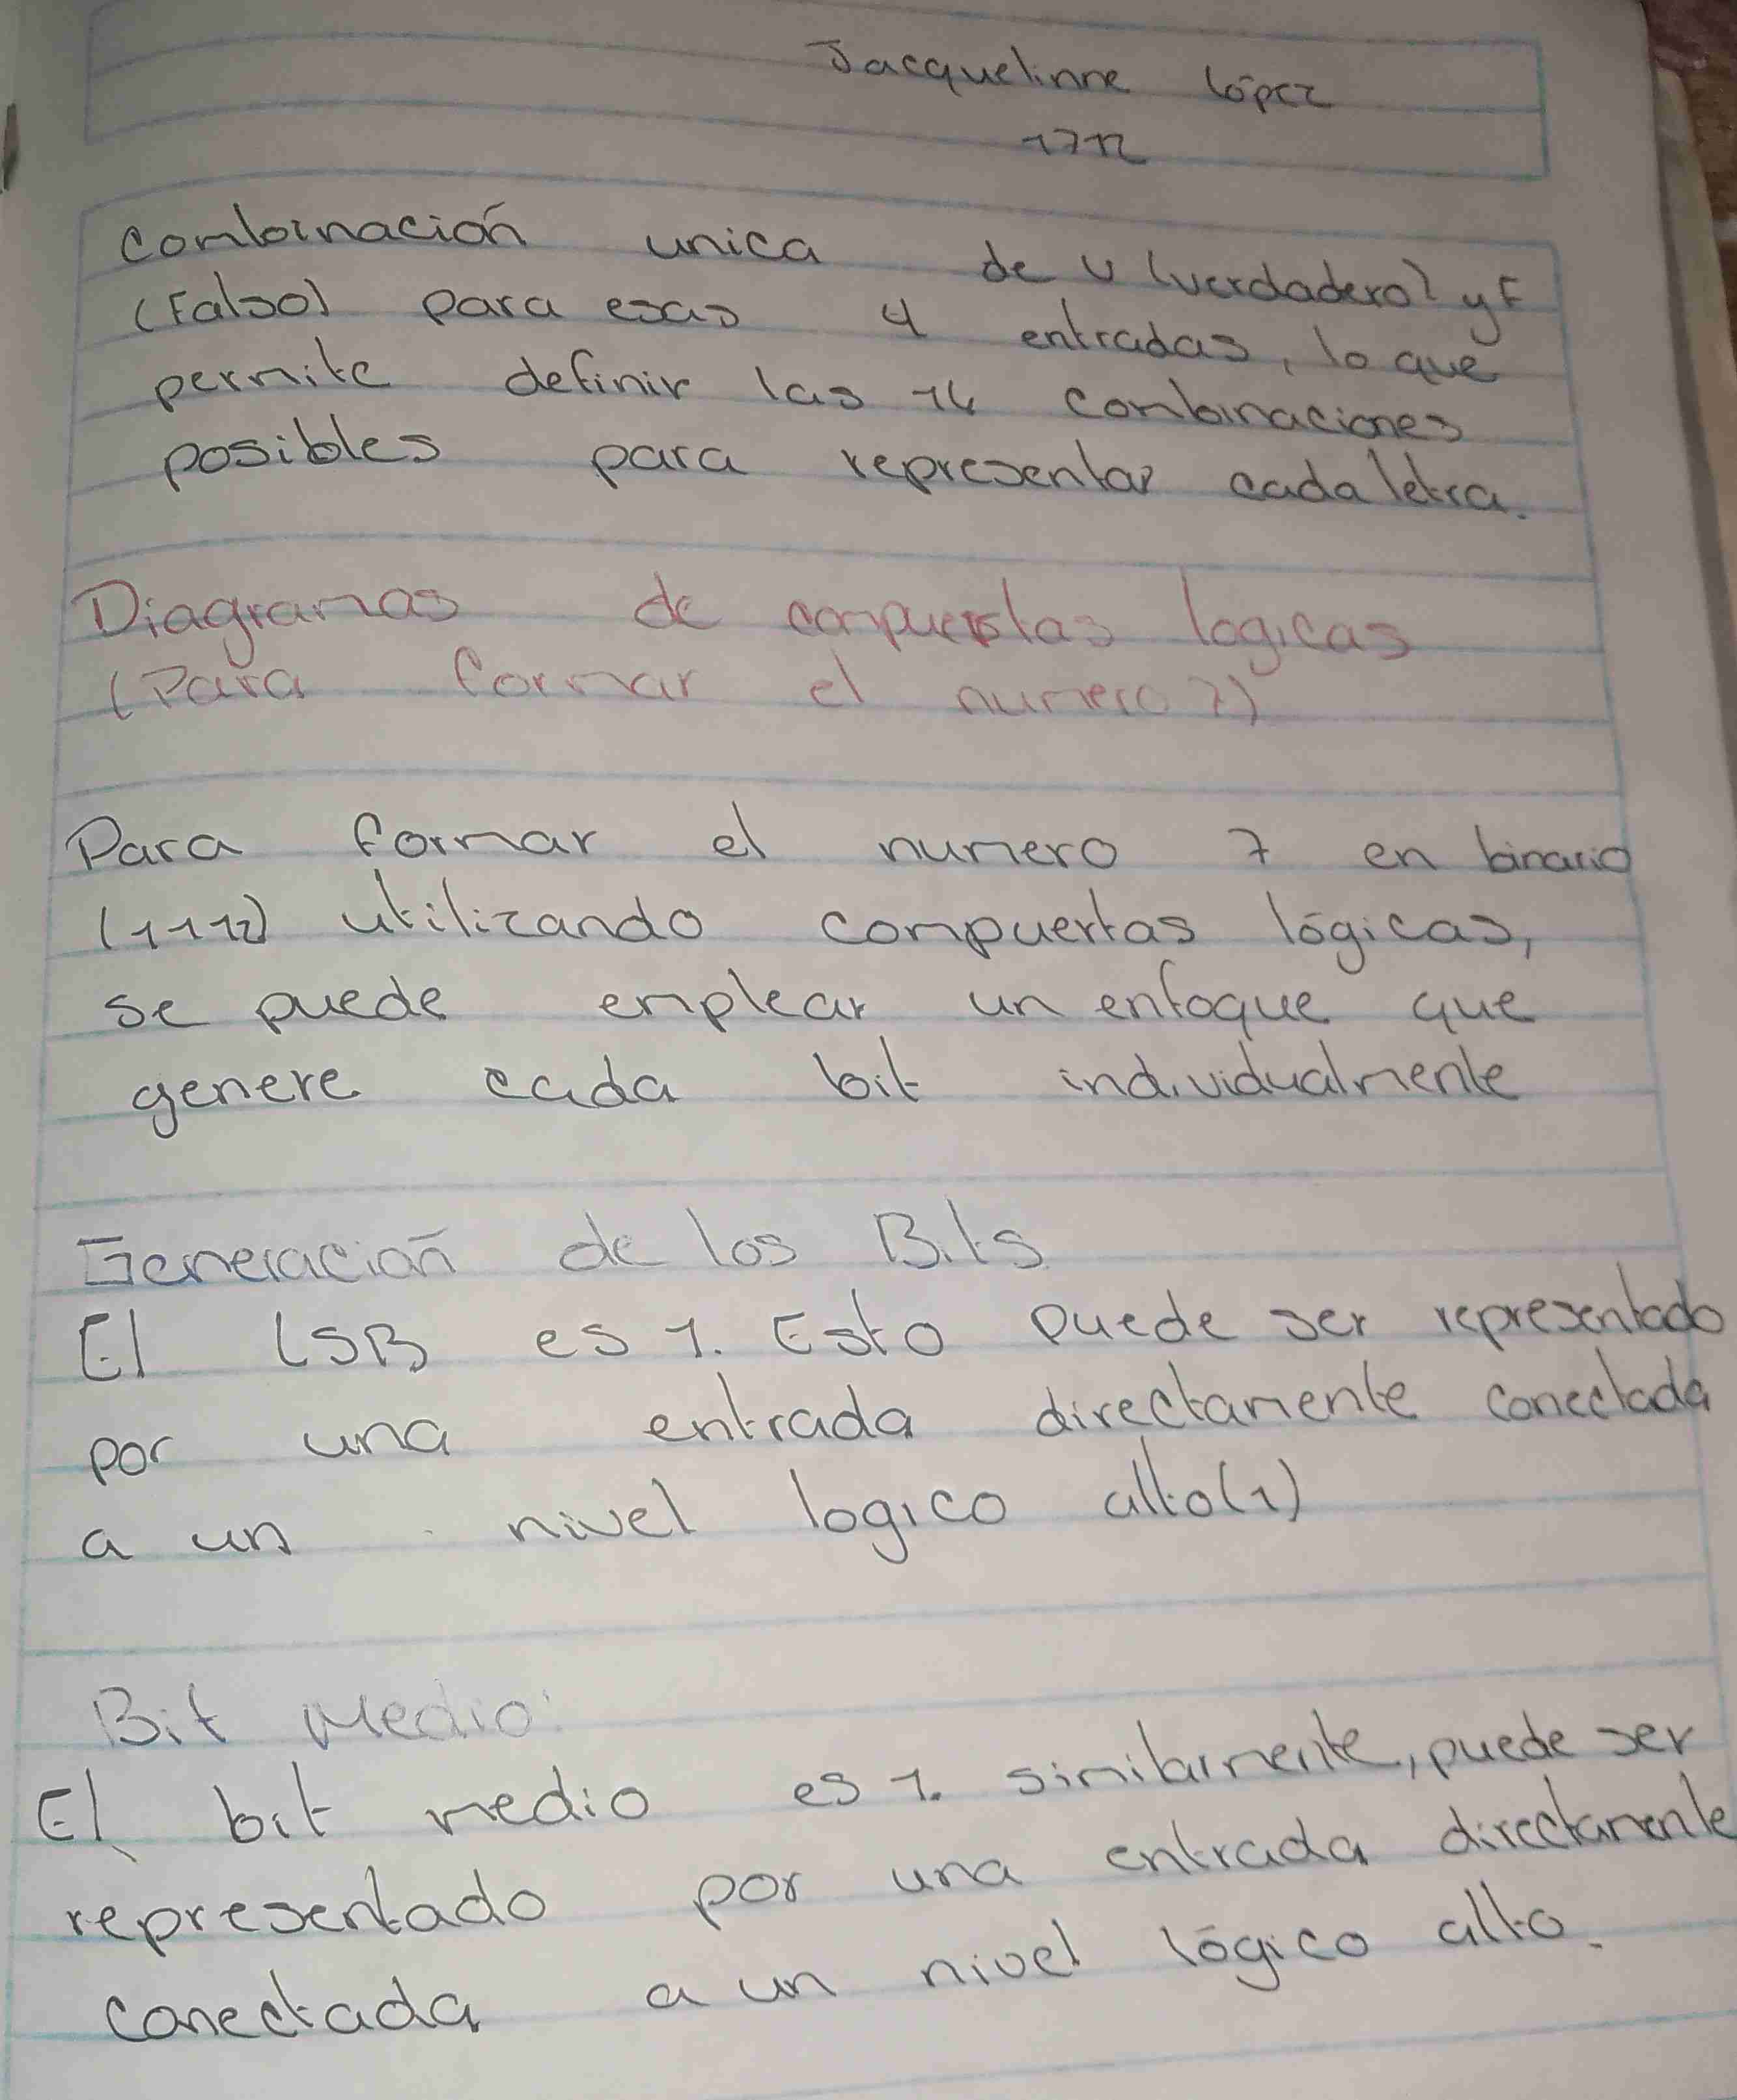 Jacquelinne López
combinación unica de V (verdadero) y F
(Falso) para esas 4 entradas, lo que
permite definir las 16 combinaciones
posibles para representar cada letra.
Diagramas de compuertas logicas
(Para formar el numero 7)
Para formar el numero 7 en binario
(1112) utilizando compuertas lógicas,
se puede emplear un enfoque que
genere cada bit individualmente
Generación de los Bits
El LSB es 1. Esto puede ser representado
por una entrada directamente conectada
a un nivel logico alto(1)
Bit Medio:
El bit medio es 1. similarmente, puede ser
representado por una entrada directamente
conectada a un nivel lógico alto.